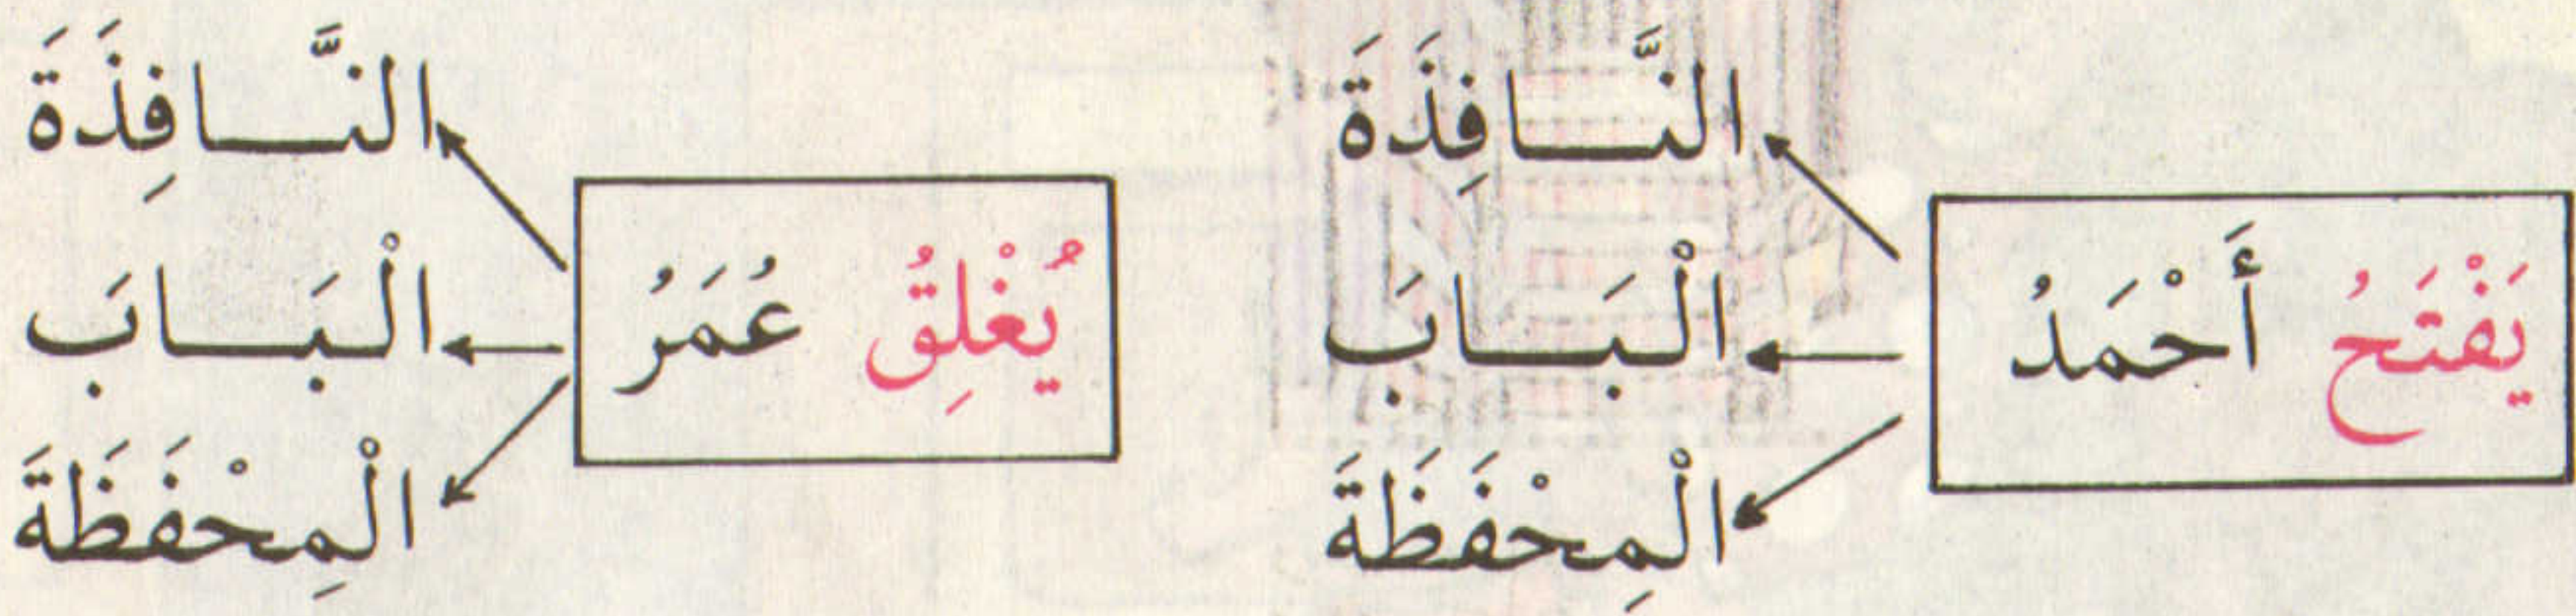 يَفْتَحُ أَحْمَدُ
النَّافِذَةَ
الْبَابَ
الْمِحْفَظَةَ
يُغْلِقُ عُمَرُ
النَّافِذَةَ
الْبَابَ
الْمِحْفَظَةَ